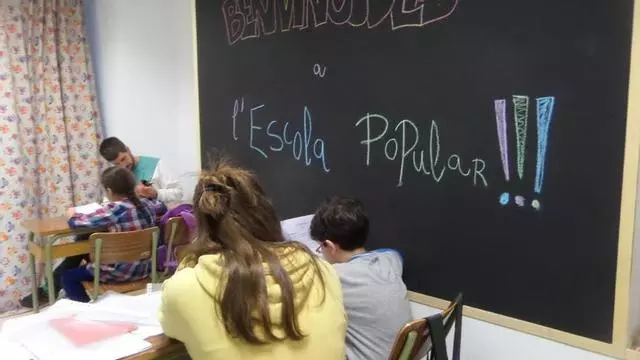 BENVINGUDES
a
l'Escola Popular!!!